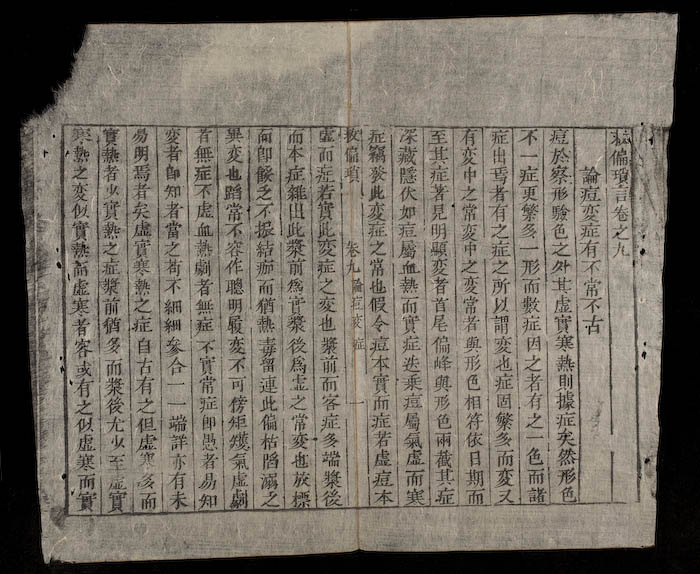 救偏瑣言卷之九
論痘变症有不常不古
痘於察形驗色之外其虛實寒熱則據症矣然形色
不一症更繁多一形而數症因之者有之一色而諸
症出焉者有之症之所以謂変也症固繁多而変又
有変中之常変中之変常者與形色相符依日期而
至其症著見明顯変者首尾偏峰與形色兩截其症
深藏隱伏如痘屬血熱而實症迭乘痘屬氣虛而寒
症竊發此変症之常也假令痘本實而症若虛痘本
救偏瑣 卷九論痘变症 一
虛而症若實此変症之変也漿前而客症多端漿後
而本症雜出此漿前爲實漿後爲虛之常変也放標
而即餒乏不振結痂而猶熱毒留連此偏枯陷溺之
異変也蹈常不容作聰明履変不可傍矩矱氣虛劇
者無症不虛血熱劇者無症不實常症即愚者易知
変者即知者當之苟不細細參合一一端詳亦有未
易明焉者矣虛實寒熱之症自古有之但虛寒多而
實熱者少實熱之症漿前猶多而漿後尤少至虛實
寒熱之変似實熱而虛寒者容或有之似虛寒而實